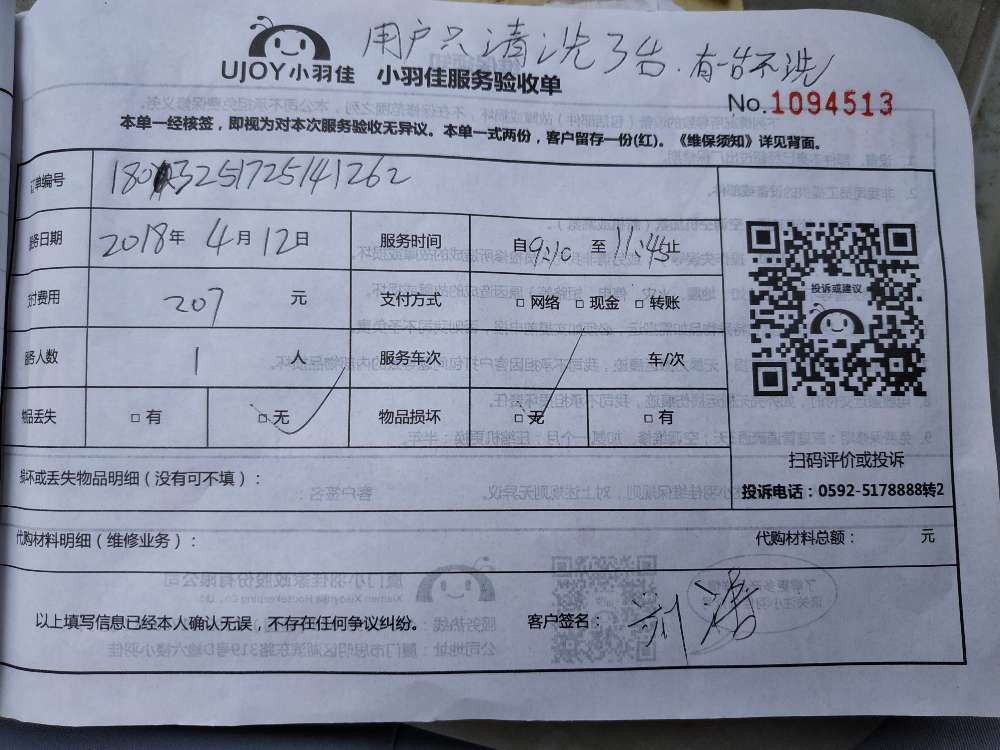 用户只清洗了台.有一台不洗
UJOY小羽佳 小羽佳服务验收单
No.1094513
本单一经核签，即视为对本次服务验收无异议。本单一式两份，客户留存一份(红)。《维保须知》详见背面。
订单编号
服务日期 2018年 4月 12日 服务时间 自9:10 至 11:45止
支付费用 207 元 支付方式 □ 网络 □ 现金 □ 转账
服务人数 1 人 服务车次 车/次
物品丢失 □ 有 □ 无 物品损坏 □ 无 □ 有
投诉或建议
扫码评价或投诉
投诉电话：0592-5178888转2
损坏或丢失物品明细（没有可不填）：
代购材料明细（维修业务）： 代购材料总额： 元
以上填写信息已经本人确认无误，不存在任何争议纠纷。 客户签名：